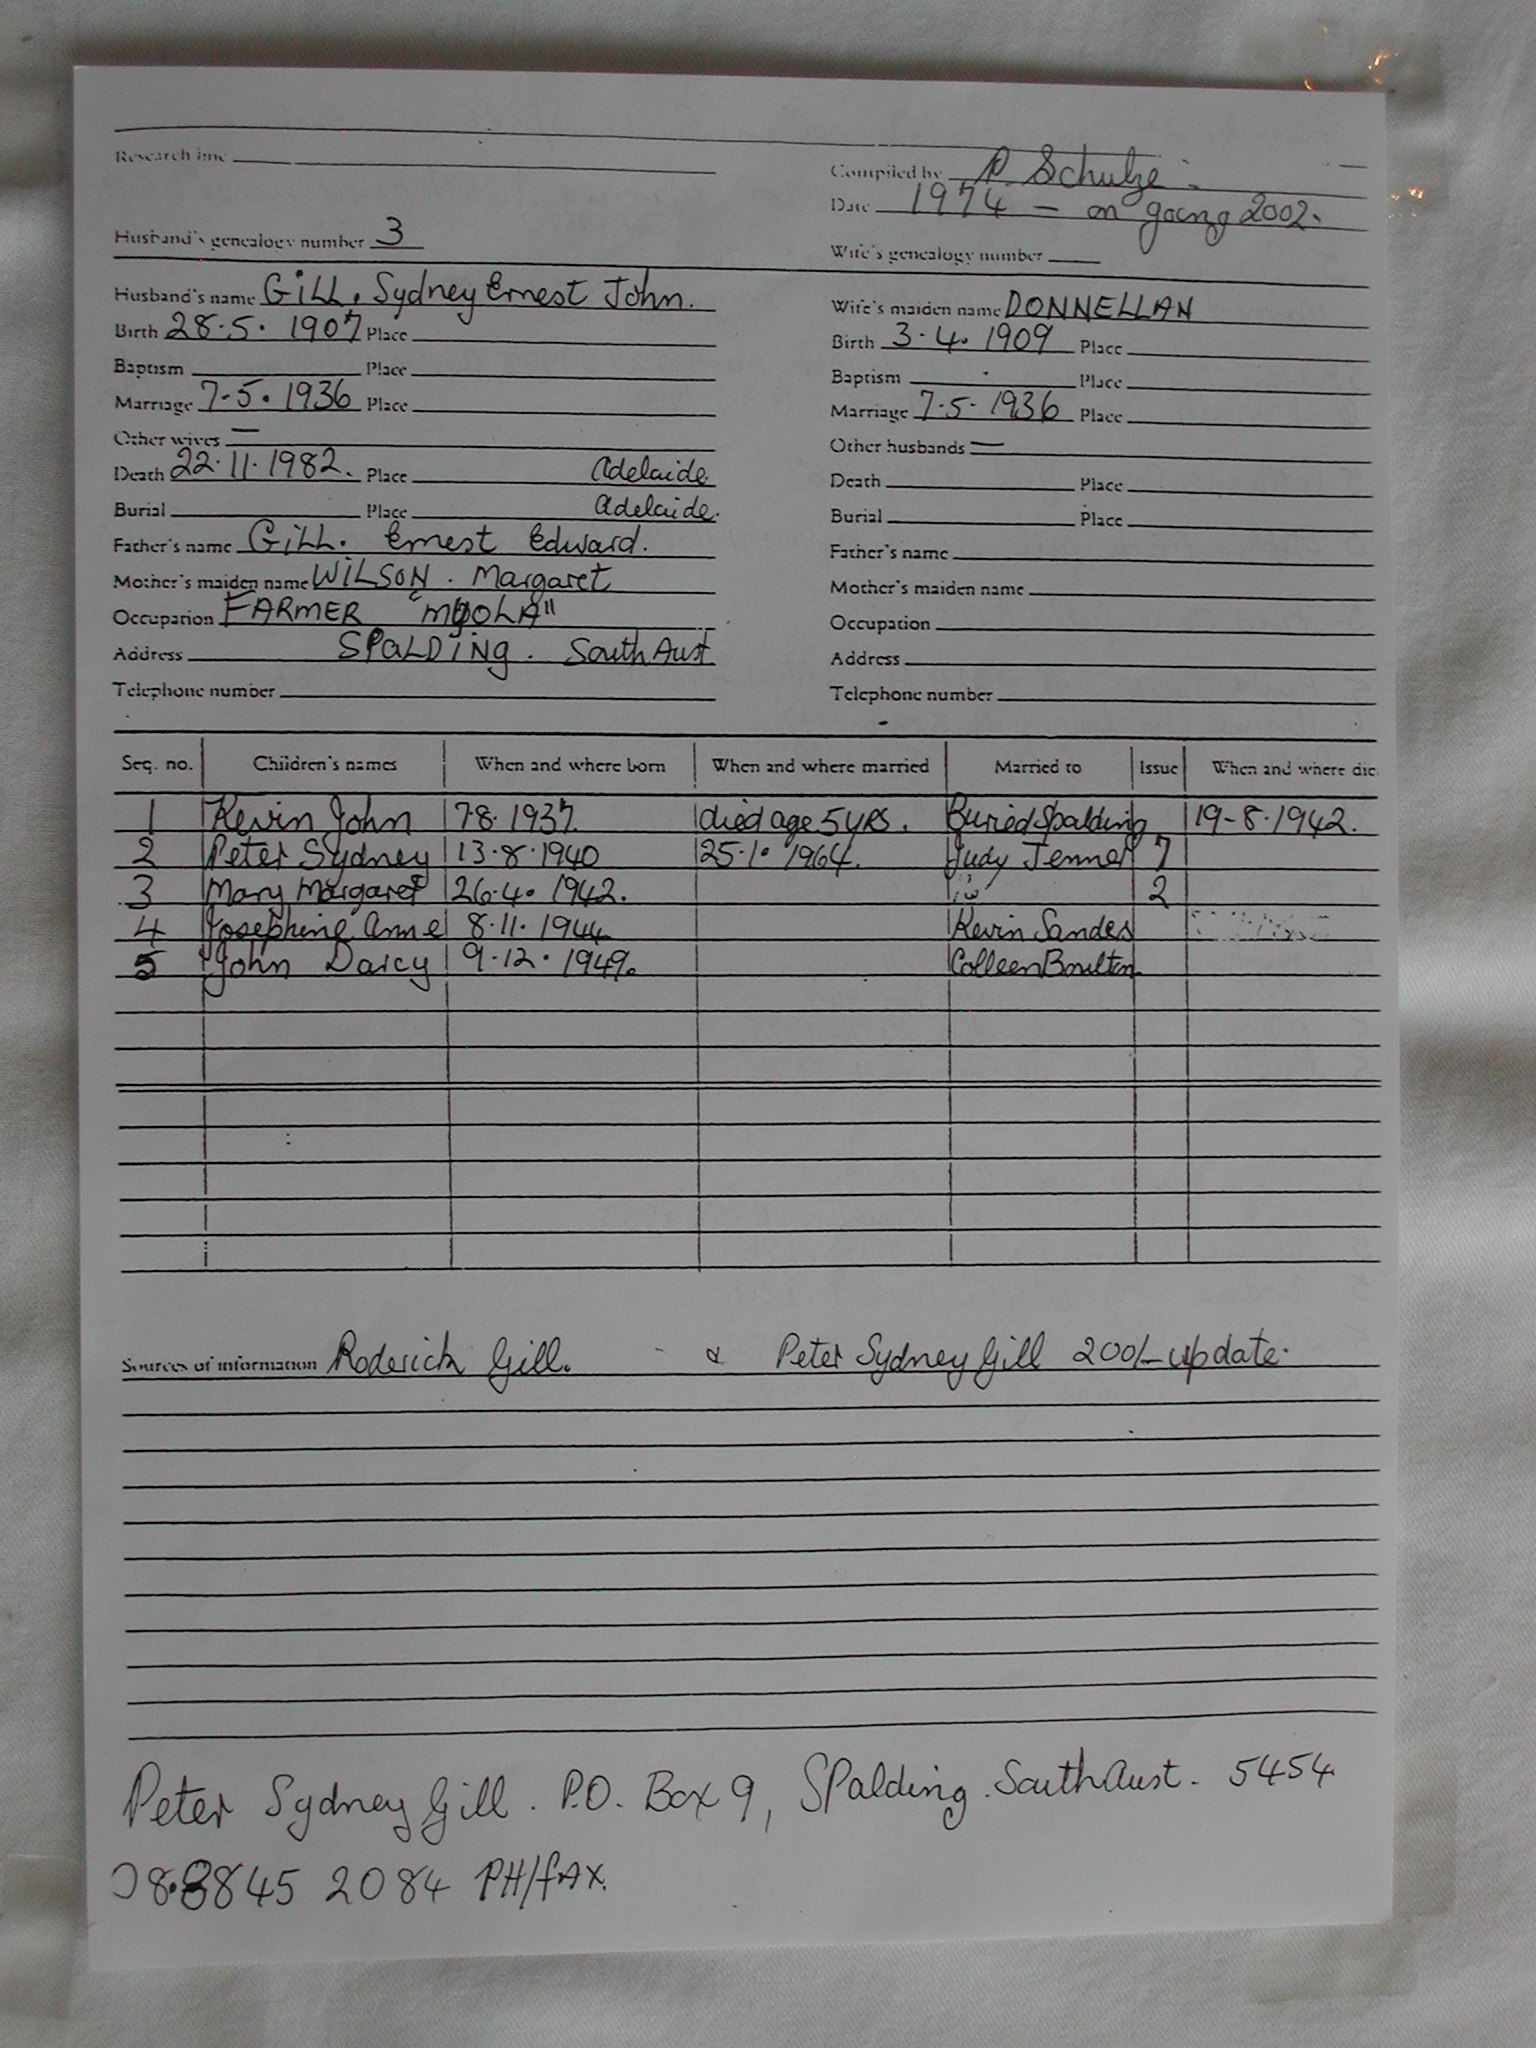 Research line
Compiled by P Schulze
Date 1974 - on going 2002.
Husband's genealogy number 3
Wife's genealogy number
Husband's name GILL. Sydney Ernest John.
Wife's maiden name DONNELLAN
Birth 28.5.1907 Place
Birth 3.4.1909 Place
Baptism Place
Baptism Place
Marriage 7.5.1936 Place
Marriage 7.5.1936 Place
Other wives —
Other husbands —
Death 22.11.1982. Place Adelaide.
Death Place
Burial Place Adelaide.
Burial Place
Father's name GILL. Ernest Edward.
Father's name
Mother's maiden name WILSON. Margaret
Mother's maiden name
Occupation FARMER "MOOLA"
Occupation
Address SPALDING. South Aust
Address
Telephone number
Telephone number
Seq. no. Children's names When and where born When and where married Married to Issue When and where die
1 Kevin John 7.8.1937. died age 5 yrs. Buried Spalding 19-8.1942.
2 Peter Sydney 13.8.1940 25.1.1964. Judy Jenner 7
3 Mary Margaret 26.4.1942. 2
4 Josephine Anne 8.11.1944 Kevin Sandes
5 John Darcy 9.12.1949. Colleen Boulton
Sources of information Roderick Gill. & Peter Sydney Gill 2001-update.
Peter Sydney Gill. P.O. Box 9, Spalding. South Aust. 5454
08.8845 2084 PH/FAX.